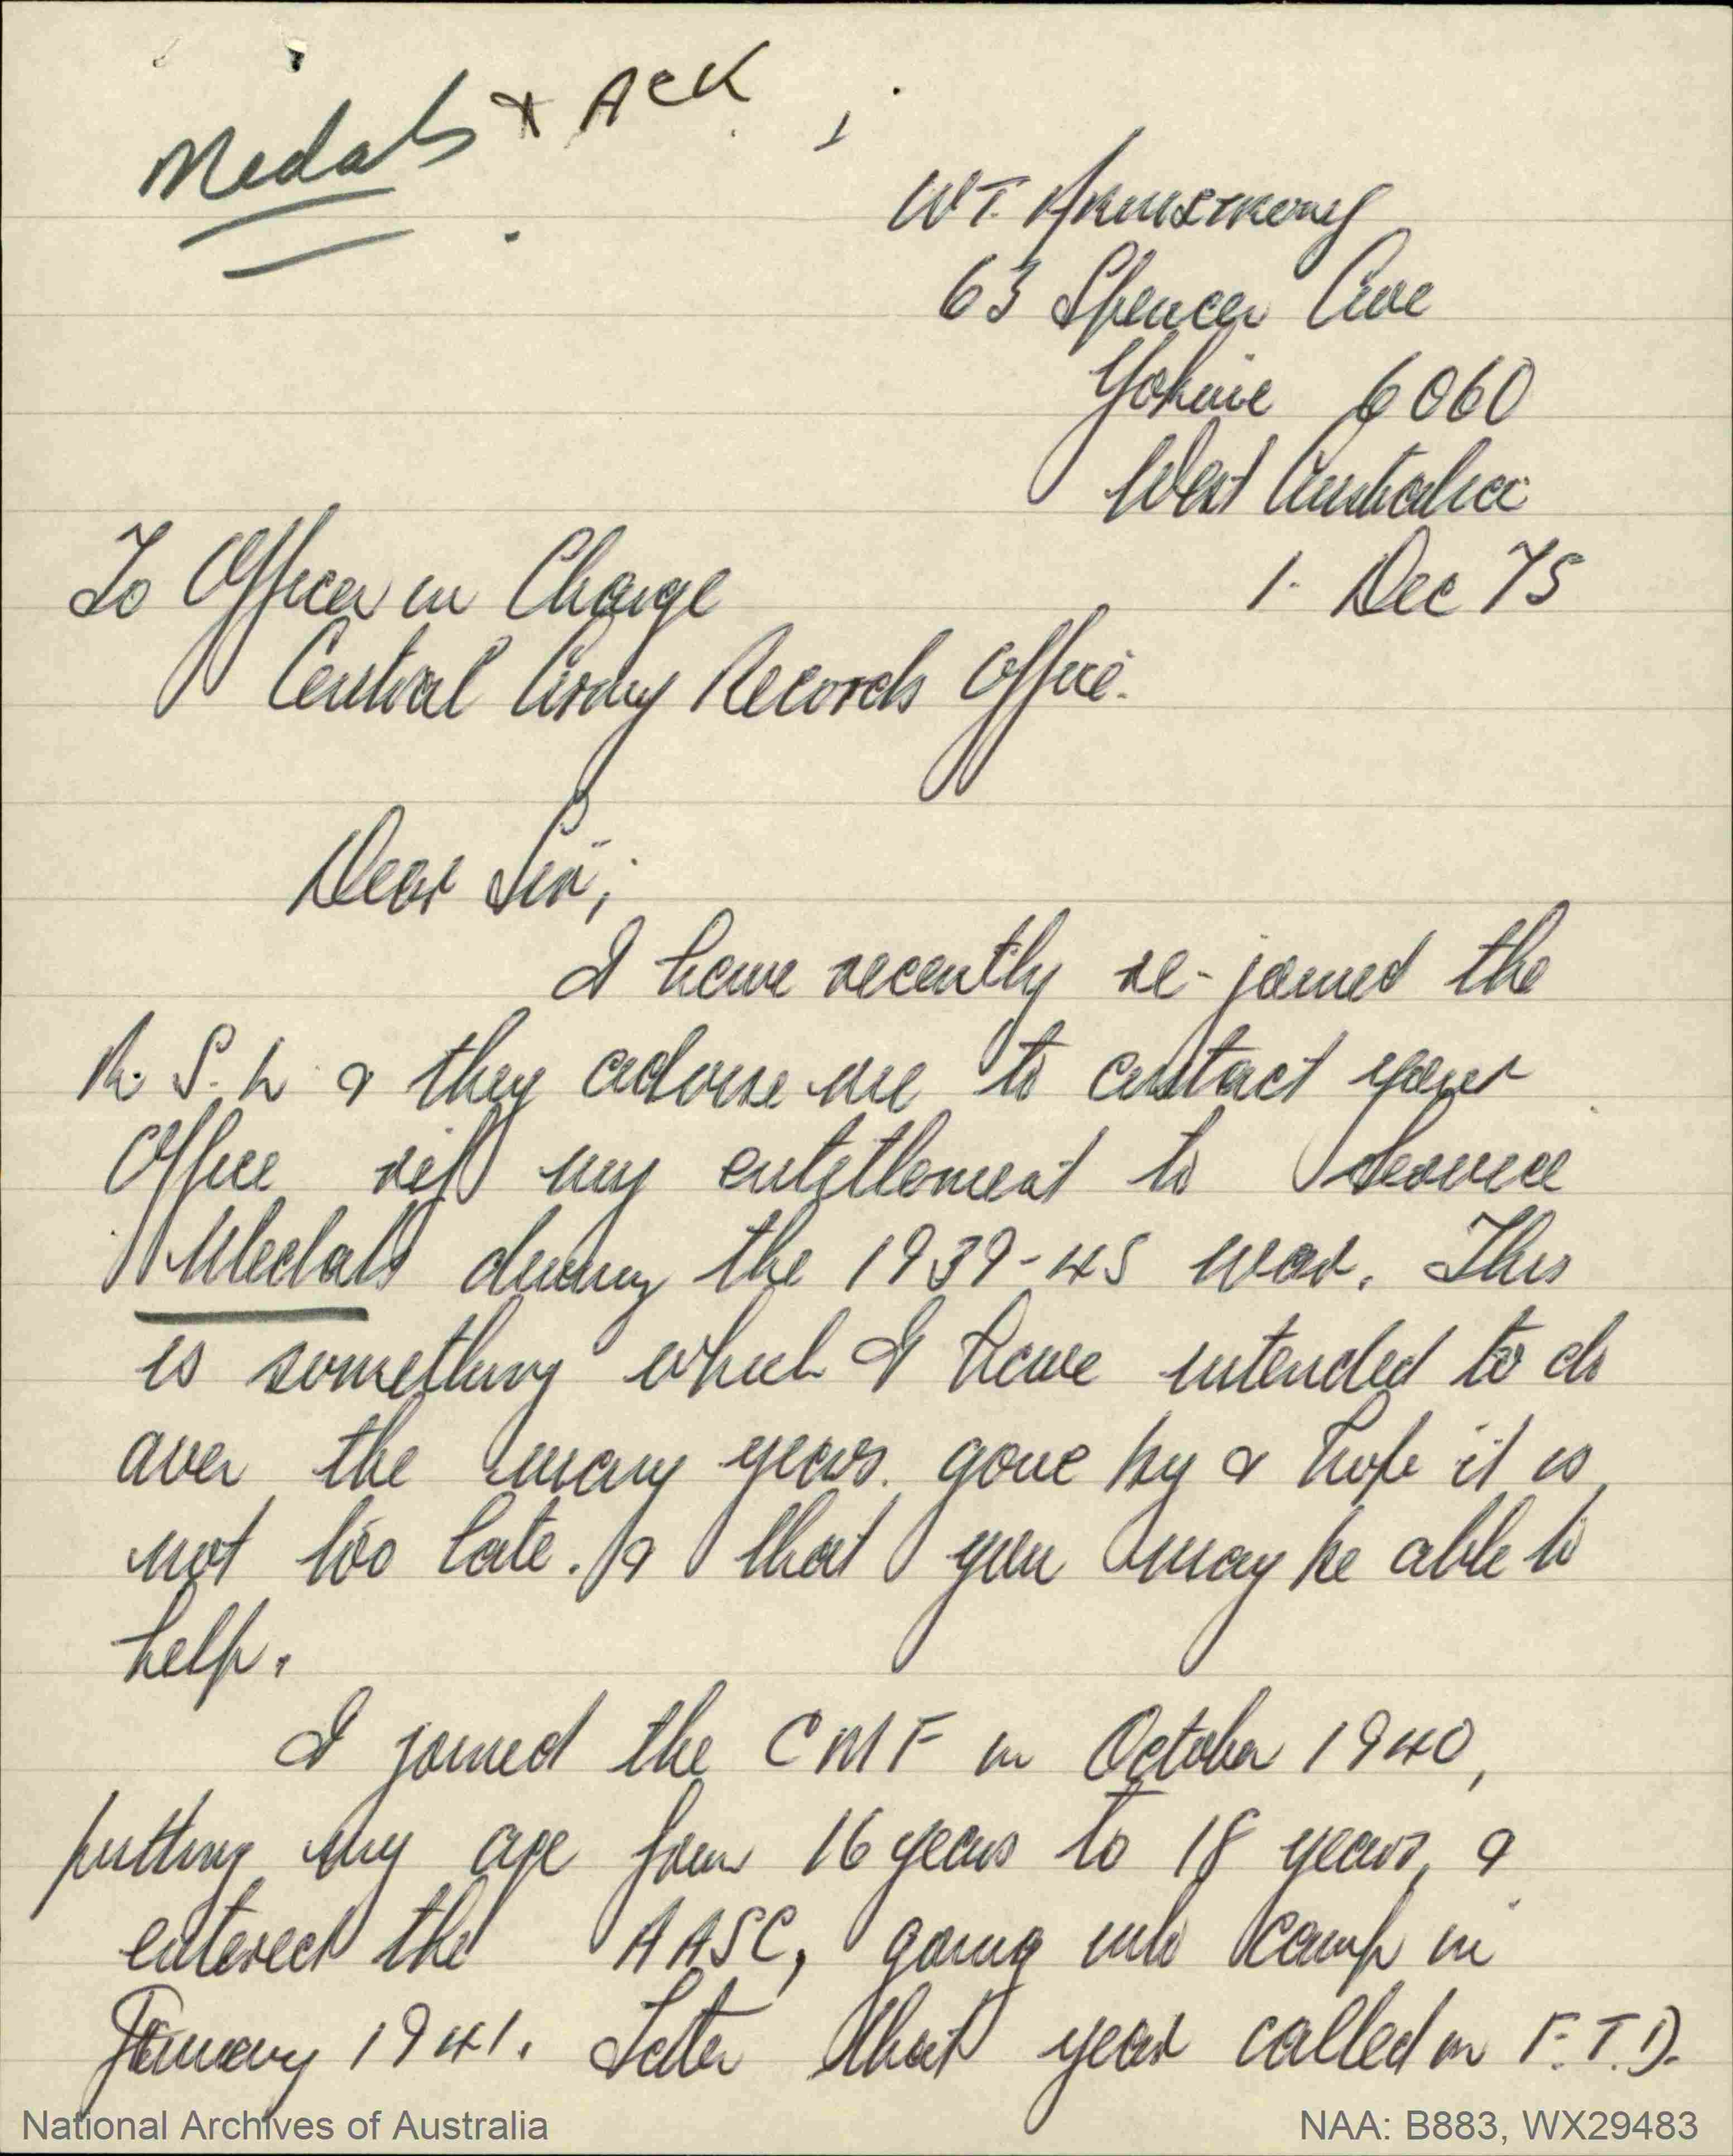 Medals & ACK
WT. Armstrong
63 Spencer Ave
Yokine 6060
West Australia
1. Dec 75
To Officer in Charge
Central Army Records Office.
Dear Sir,
I have recently re-joined the
R. S. L & they advise me to contact your
Office ref my entitlement to Service
Medals during the 1939-45 war. This
is something which I have intended to do
over the many years gone by & hope it is
not too late. & that you may be able to
help.
I joined the CMF in October 1940,
putting my age from 16 years to 18 years, &
entered the AASC, going into camp in
January 1941. Later that year called on F.T.D.
National Archives of Australia
NAA: B883, WX29483